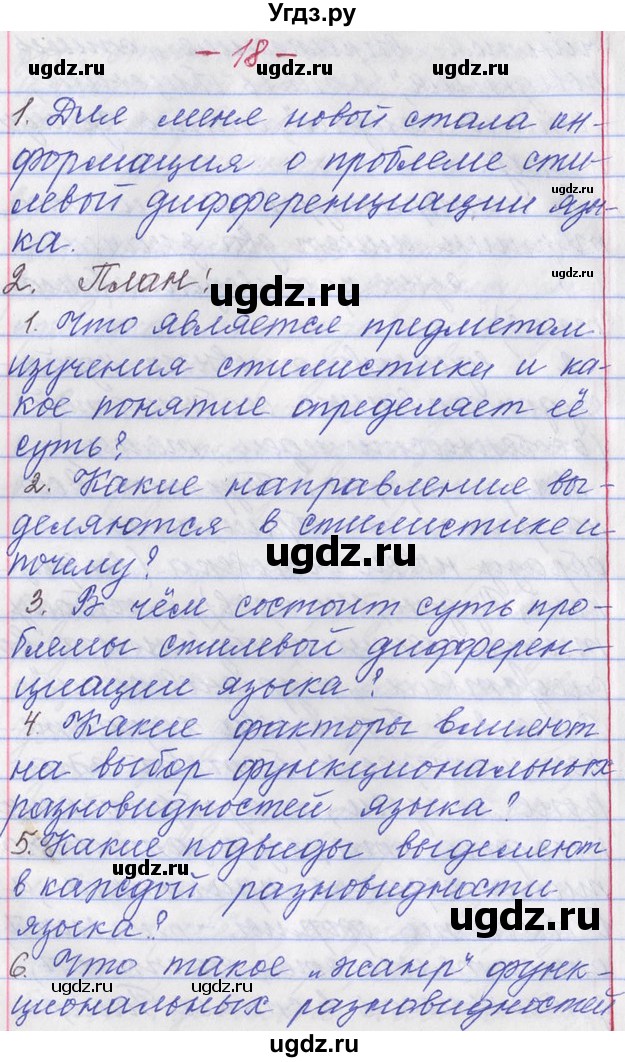 Угдз.ру
- 18 -
ugdz.ru ugdz.ru ugdz.ru
1. Для меня новой стала ин-
формация о проблеме сти-
ugdz.ru
левой дифференциации язы-
ка.
2. План:
ugdz.ru
ugdz.ru
1. Что является предметом
изучения стилистики и ка-
кое понятие определяет её
ugdz.ru
суть?
2. Какие направления вы-
деляются в стилистике и
ugdz.ru
почему?
ugdz.ru
3. В чём состоит суть про-
блемы стилевой дифферен-
циации языка?
ugdz.ru
4. Какие факторы влияют
на выбор функциональных
разновидностей языка?
5. Какие подвиды выделяют
ugdz.ru
в каждой разновидности
ugdz.ru
языка?
6. Что такое „жанр" функ-
циональных разновидностей
ugdz.ru
ugdz.ru